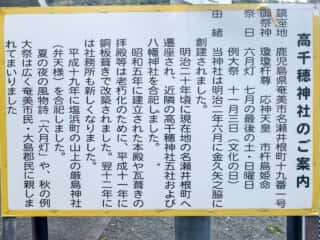 高千穂神社のご案内
鎮座地　鹿児島県奄美市名瀬井根町十九番一号
御祭神　瓊瓊杵尊　応神天皇　市杵島姫命
祭日　六月灯　七月の最後の土・日曜日
例大祭　十一月三日（文化の日）
由緒　当神社は明治二年六月に金久矢之脇に
創建されました。
明治二十年頃に現在地の名瀬井根町へ
遷座され、近隣の高千穂神社五社および
八幡神社を合祀しました。
昭和五年に建立された本殿や瓦葺きの
拝殿等は老朽化のために、平成十一年に
銅板葺きで改築されました。翌十二年に
は社務所も新しくなりました。
平成十九年に塩浜町の山上の厳島神社
（弁天様）を合祀しました。
夏の夜の風物詩「六月灯」や、秋の例
大祭は広く奄美市民・大島郡民に親しま
れてまいりました